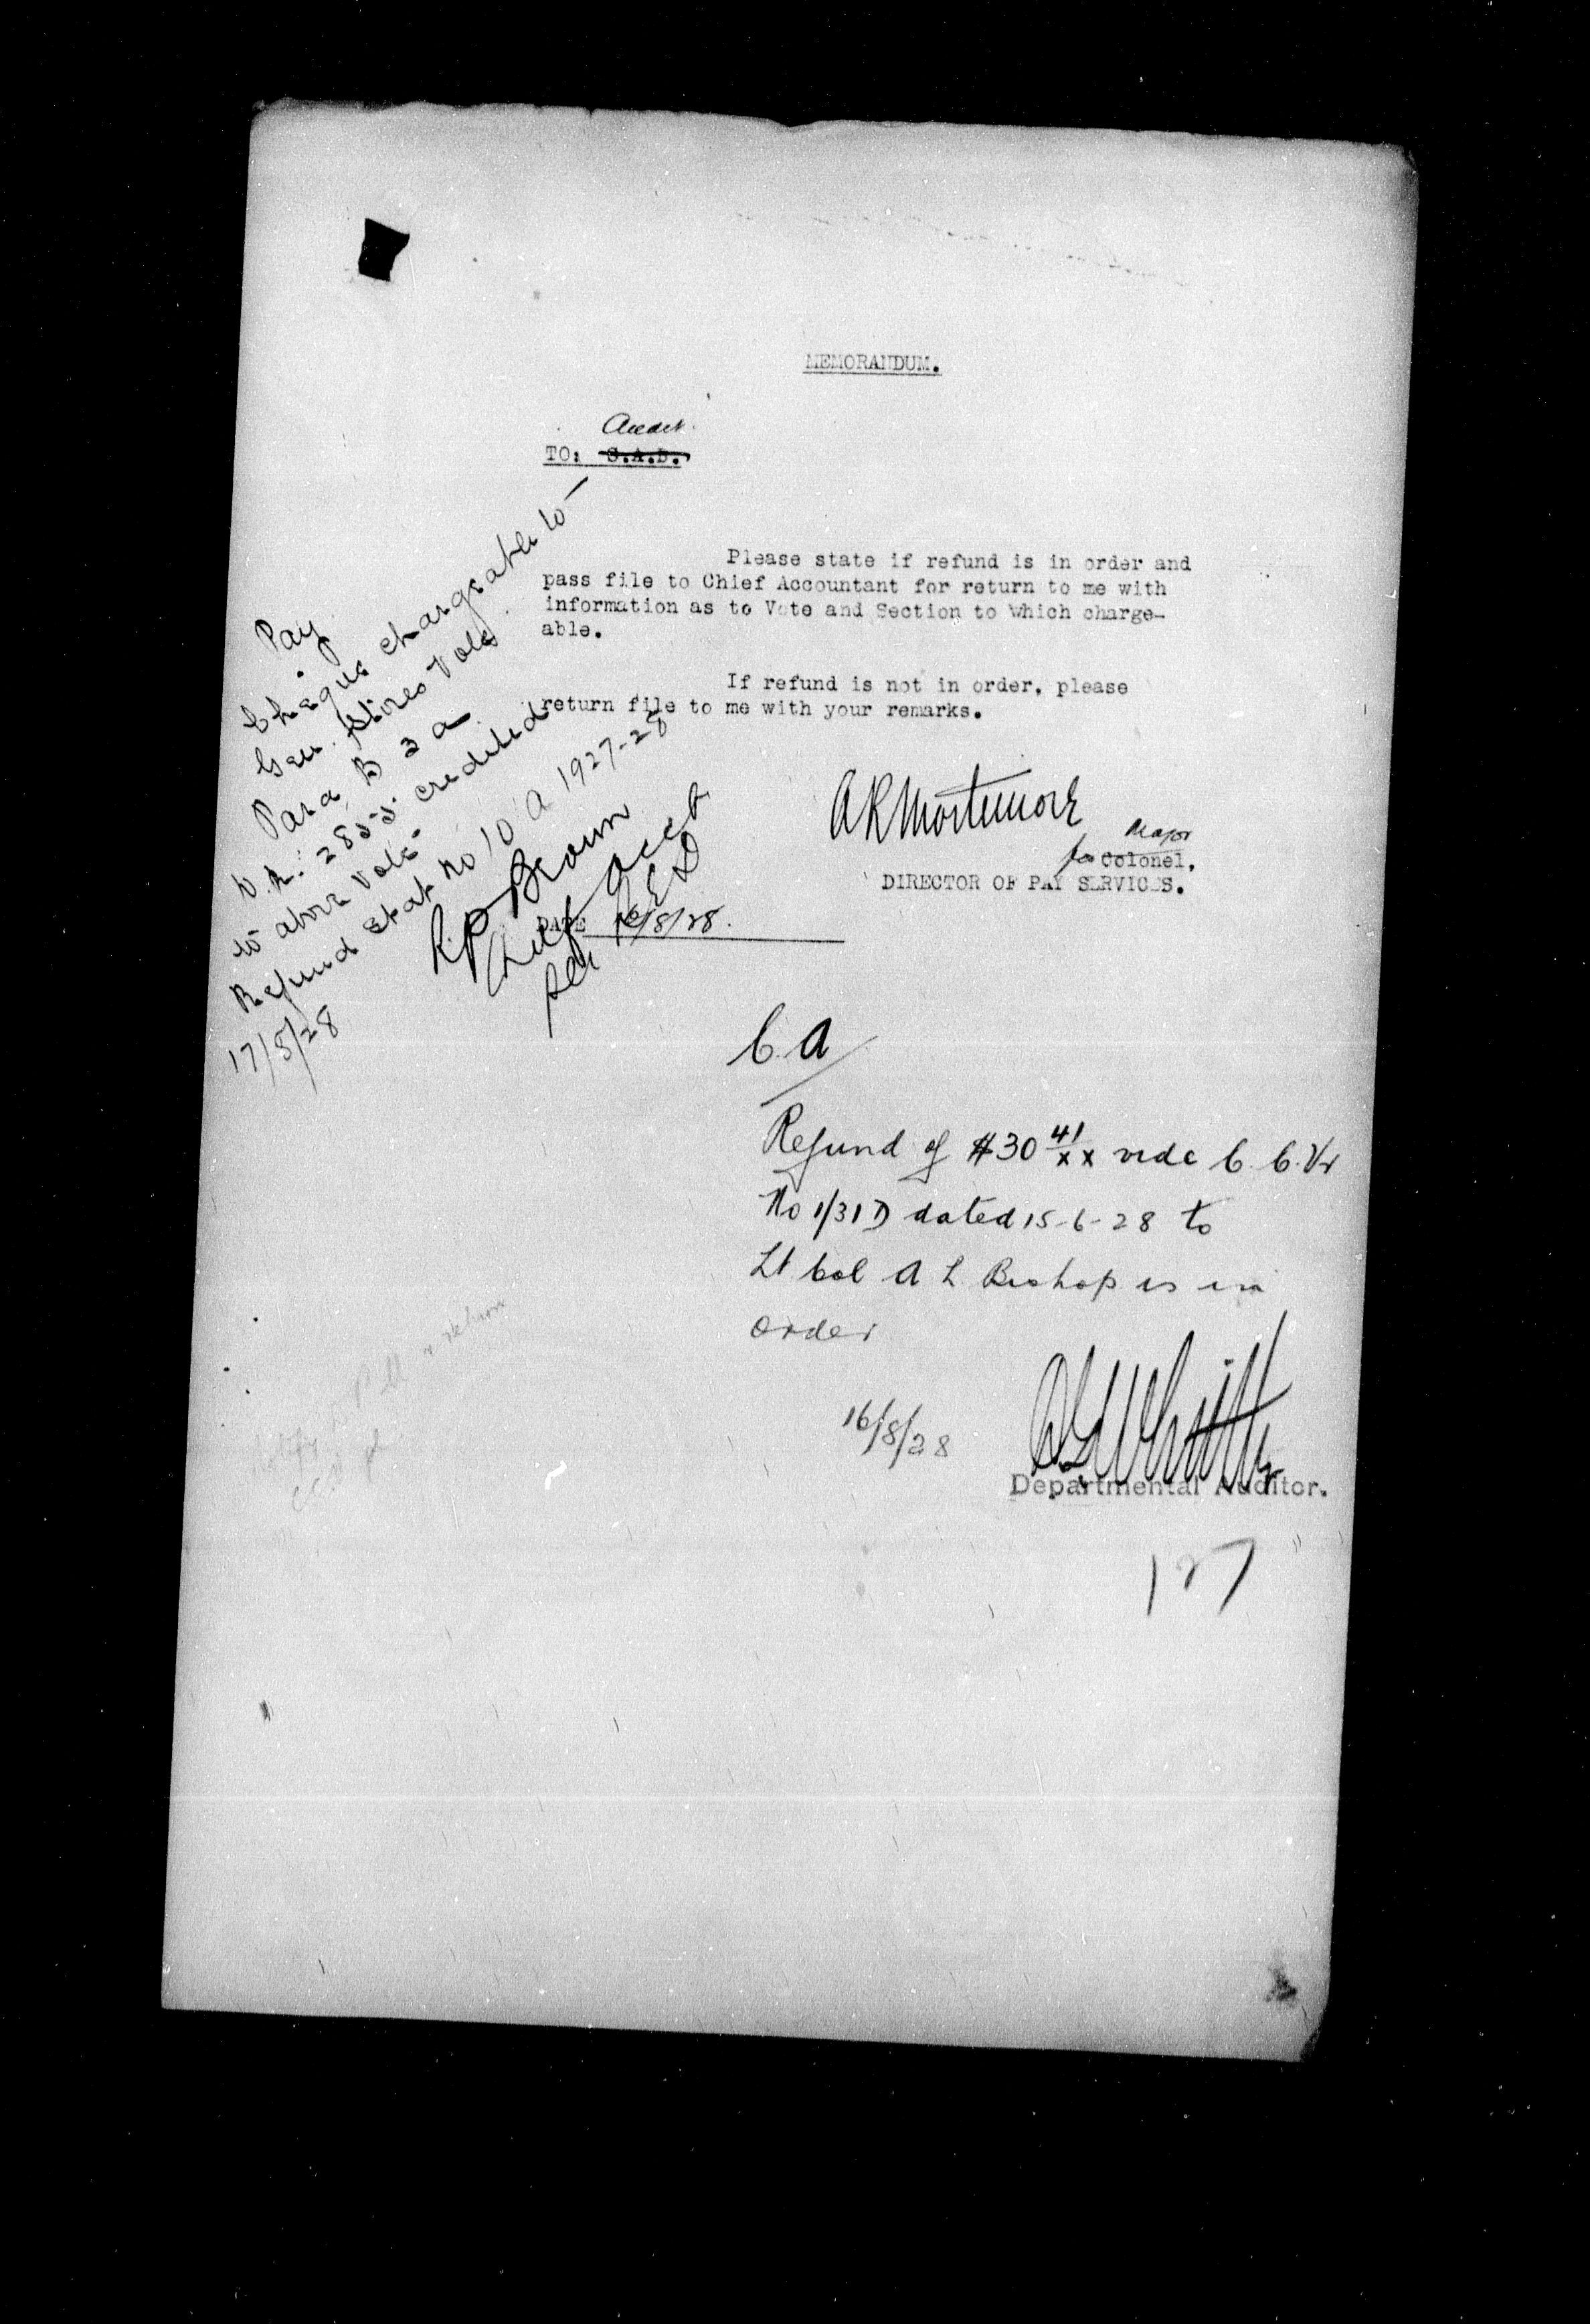 MEMORANDUM.
Audit.
TO: S.A.D.
Please state if refund is in order and
pass file to Chief Accountant for return to me with
information as to Vote and Section to which charge-
able.
If refund is not in order, please
return file to me with your remarks.
A R Mortimore
Major
for Colonel.
DIRECTOR OF PAY SERVICES.
DATE 16/8/28.
Pay
Cheque chargeable to —
Gen. Stores Vote
Para B 3 a
D.R. 2855 credited
to above Vote
Refund Stat No 10 A 1927-28
17/8/28
R.P. Brown
Chief Acct
C.A
Refund of $30 41/xx vide C.C. Vr
No 1/31 D dated 15-6-28 to
Lt Col A L Bishop is in
order
16/8/28
Departmental Auditor.
127